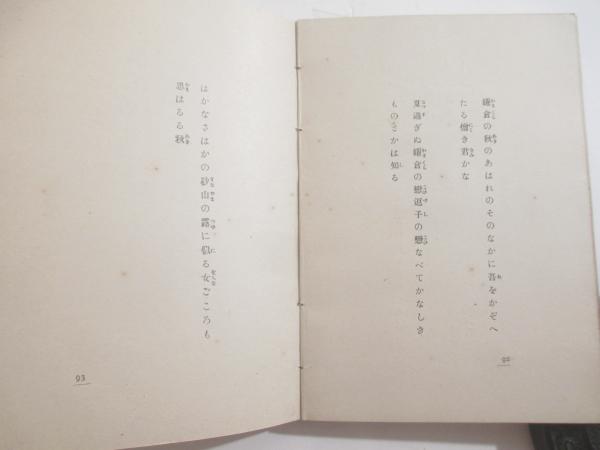 鎌倉の秋のあはれのそのなかに吾をかぞへ
たる憎き君かな
夏過ぎぬ鎌倉の戀逗子の戀なべてかなしき
ものとかは知る
92
はかなさはかの砂山の露に似る女ごころも
思はるる秋
93